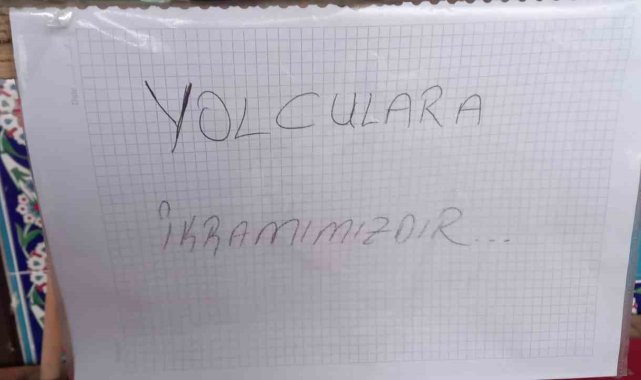 YOLCULARA
İKRAMIMIZDIR...